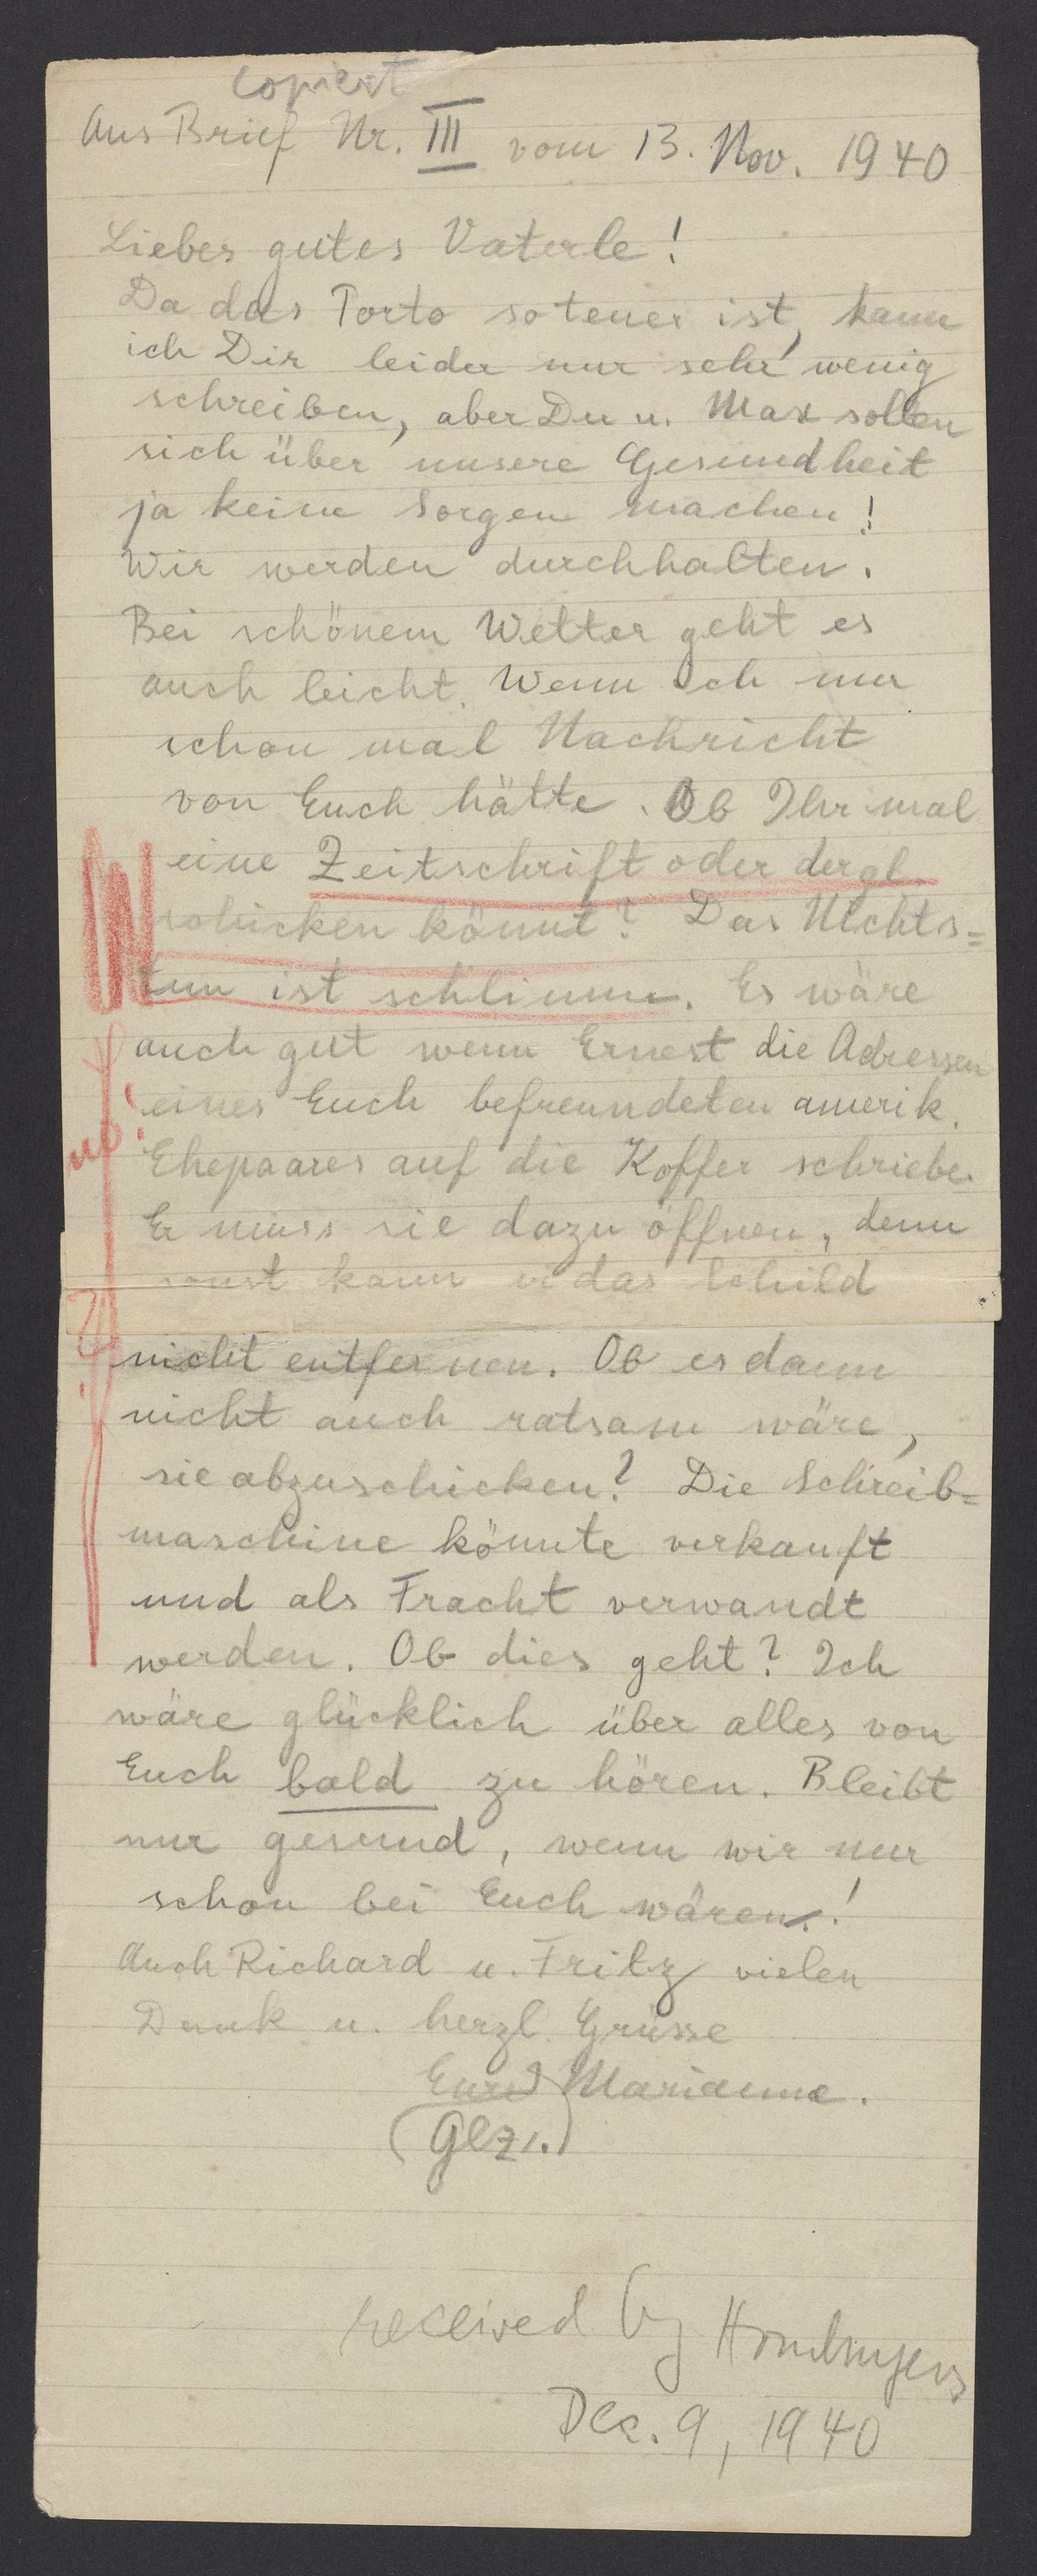 copiert
Aus Brief Nr. III vom 13. Nov. 1940
Lieber gutes Vaterle!
Da das Porto so teuer ist, kann
ich Dir leider nur sehr wenig
schreiben, aber Du u. Max sollen
sich über unsere Gesundheit
ja keine Sorgen machen!
Wir werden durchhalten.
Bei schönem Wetter geht es
auch leicht. Wenn ich nur
schon mal Nachricht
von Euch hätte. Ob Ihr mal
eine Zeitschrift oder dergl.
schicken könnt? Das Nichts=
tun ist schlimm. Es wäre
auch gut wenn Ernest die Adressen
eines Euch befreundeten amerik.
no!
Ehepaares auf die Koffer schriebe.
Er muss sie dazu öffnen, denn
sonst kann er das Schild
nicht entfernen. Ob es dann
nicht auch ratsam wäre,
sie abzuschicken? Die Schreib=
maschine könnte verkauft
und als Fracht verwandt
werden. Ob dies geht? Ich
wäre glücklich über alles von
Euch bald zu hören. Bleibt
nur gesund, wenn wir nur
schon bei Euch wären!
Auch Richard u. Fritz vielen
Dank u. herzl. Grüsse
Eure Marianne.
(Glz.)
received by Homburgers
Dec. 9, 1940